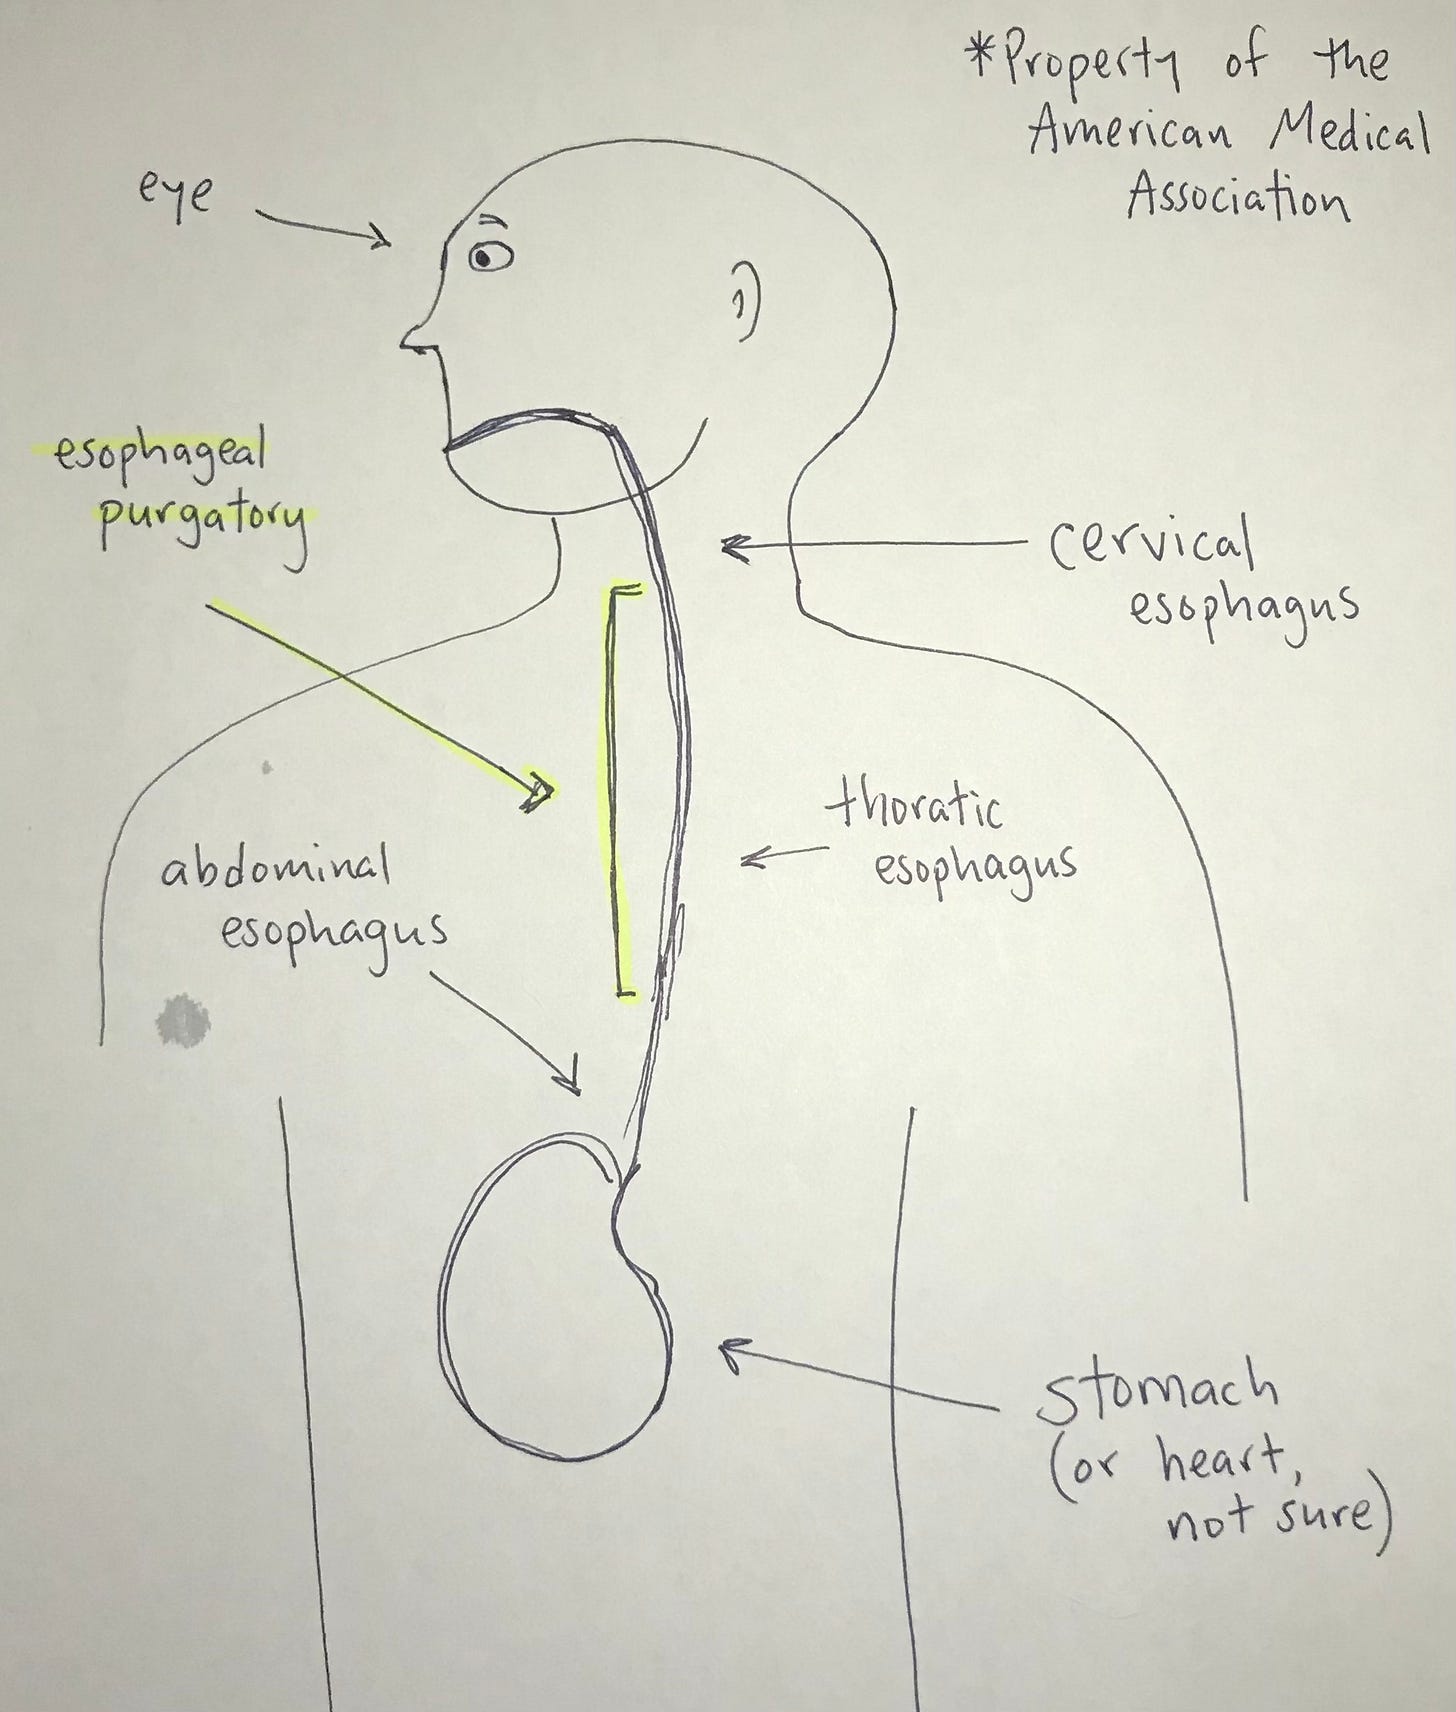 *Property of the
American Medical
Association
eye
esophageal
purgatory
cervical
esophagus
thoratic
esophagus
abdominal
esophagus
stomach
(or heart,
not sure)